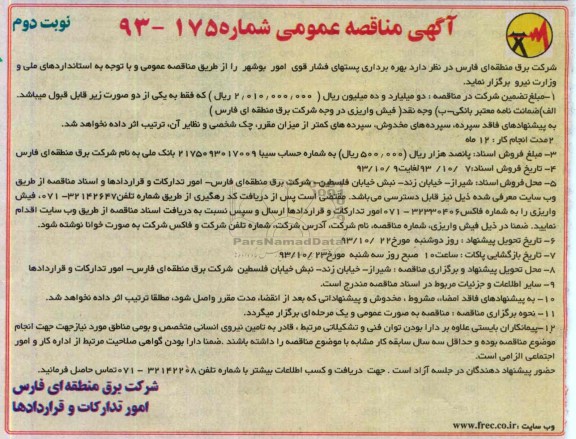 آگهی مناقصه عمومی شماره ۱۷۵ -۹۳
نوبت دوم
شرکت برق منطقه‌ای فارس در نظر دارد بهره برداری پستهای فشار قوی امور بوشهر را از طریق مناقصه عمومی و با توجه به استانداردهای ملی و
وزارت نیرو برگزار نماید.
۱-مبلغ تضمین شرکت در مناقصه : دو میلیارد و ده میلیون ریال ( ۲/۰۱۰/۰۰۰/۰۰۰ ریال ) که فقط به یکی از دو صورت زیر قابل قبول میباشد.
الف)ضمانت نامه معتبر بانکی-ب) وجه نقد( فیش واریزی در وجه شرکت برق منطقه ای فارس )
به پیشنهادهای فاقد سپرده، سپرده‌های مخدوش، سپرده های کمتر از میزان مقرر، چک شخصی و نظایر آن، ترتیب اثر داده نخواهد شد.
۲مدت انجام کار : ۱۲ ماه
۳- مبلغ فروش اسناد: پانصد هزار ریال (۵۰۰/۰۰۰ ریال) به شماره حساب سیبا ۲۱۷۵۰۹۳۰۱۷۰۰۹ بانک ملی به نام شرکت برق منطقه‌ای فارس
۴- تاریخ فروش اسناد:۷/ ۱۰/ ۹۳لغایت۹ /۹۳/۱۰
۵- محل فروش اسناد: شیراز- خیابان زند- نبش خیابان فلسطین- شرکت برق منطقه‌ای فارس- امور تدارکات و قراردادها و اسناد مناقصه از طریق
وب سایت معرفی شده ذیل نیز قابل دسترسی می باشد. مقتضی است پس از دریافت کد رهگیری از طریق شماره تلفن۳۲۱۴۲۶۴۷-۰۷۱، فیش
واریزی را به شماره فاکس۳۲۳۳۰۴۰۶-۰۷۱امور تدارکات و قراردادها ارسال و سپس نسبت به دریافت اسناد مناقصه از طریق وب سایت اقدام
نمایید. ضمنا در ذیل فیش واریزی، شماره مناقصه، نام شرکت، آدرس شرکت، شماره تلفن شرکت و فاکس شرکت به صورت خوانا نوشته شود.
۶- تاریخ تحویل پیشنهاد : روز دوشنبه مورخ۲۲ /۹۳/۱۰
۷- تاریخ بازگشایی پاکات : ساعت۱۰ صبح روز سه شنبه مورخ۲۳ /۹۳/۱۰
۸- محل تحویل پیشنهاد و برگزاری مناقصه : شیراز- خیابان زند- نبش خیابان فلسطین شرکت برق منطقه‌ای فارس- امور تدارکات و قراردادها
۹- سایر اطلاعات و جزئیات مربوط در اسناد مناقصه مندرج است.
۱۰- به پیشنهادهای فاقد امضاء، مشروط ، مخدوش و پیشنهاداتی که بعد از انقضاء مدت مقرر واصل شود، مطلقا ترتیب اثر داده نخواهد شد.
۱۱- نحوه برگزاری مناقصه : مناقصه به صورت عمومی و یک مرحله‌ای برگزار میگردد.
۱۲-پیمانکاران بایستی علاوه بر دارا بودن توان فنی و تشکیلاتی مرتبط ، قادر به تامین نیروی انسانی متخصص و بومی مناطق مورد نیازجهت جهت انجام
موضوع مناقصه بوده و حداقل سه سال سابقه کار مشابه با موضوع مناقصه را داشته باشند .ضمنا دارا بودن گواهی صلاحیت مرتبط از اداره کار و امور
اجتماعی الزامی است.
حضور پیشنهاد دهندگان در جلسه آزاد است . جهت دریافت و کسب اطلاعات بیشتر با شماره تلفن ۳۲۱۴۲۲۰۸ -۰۷۱تماس حاصل فرمائید.
شرکت برق منطقه ای فارس
امور تدارکات و قراردادها
وب سایت :www.frec.co.ir
ParsNamadData